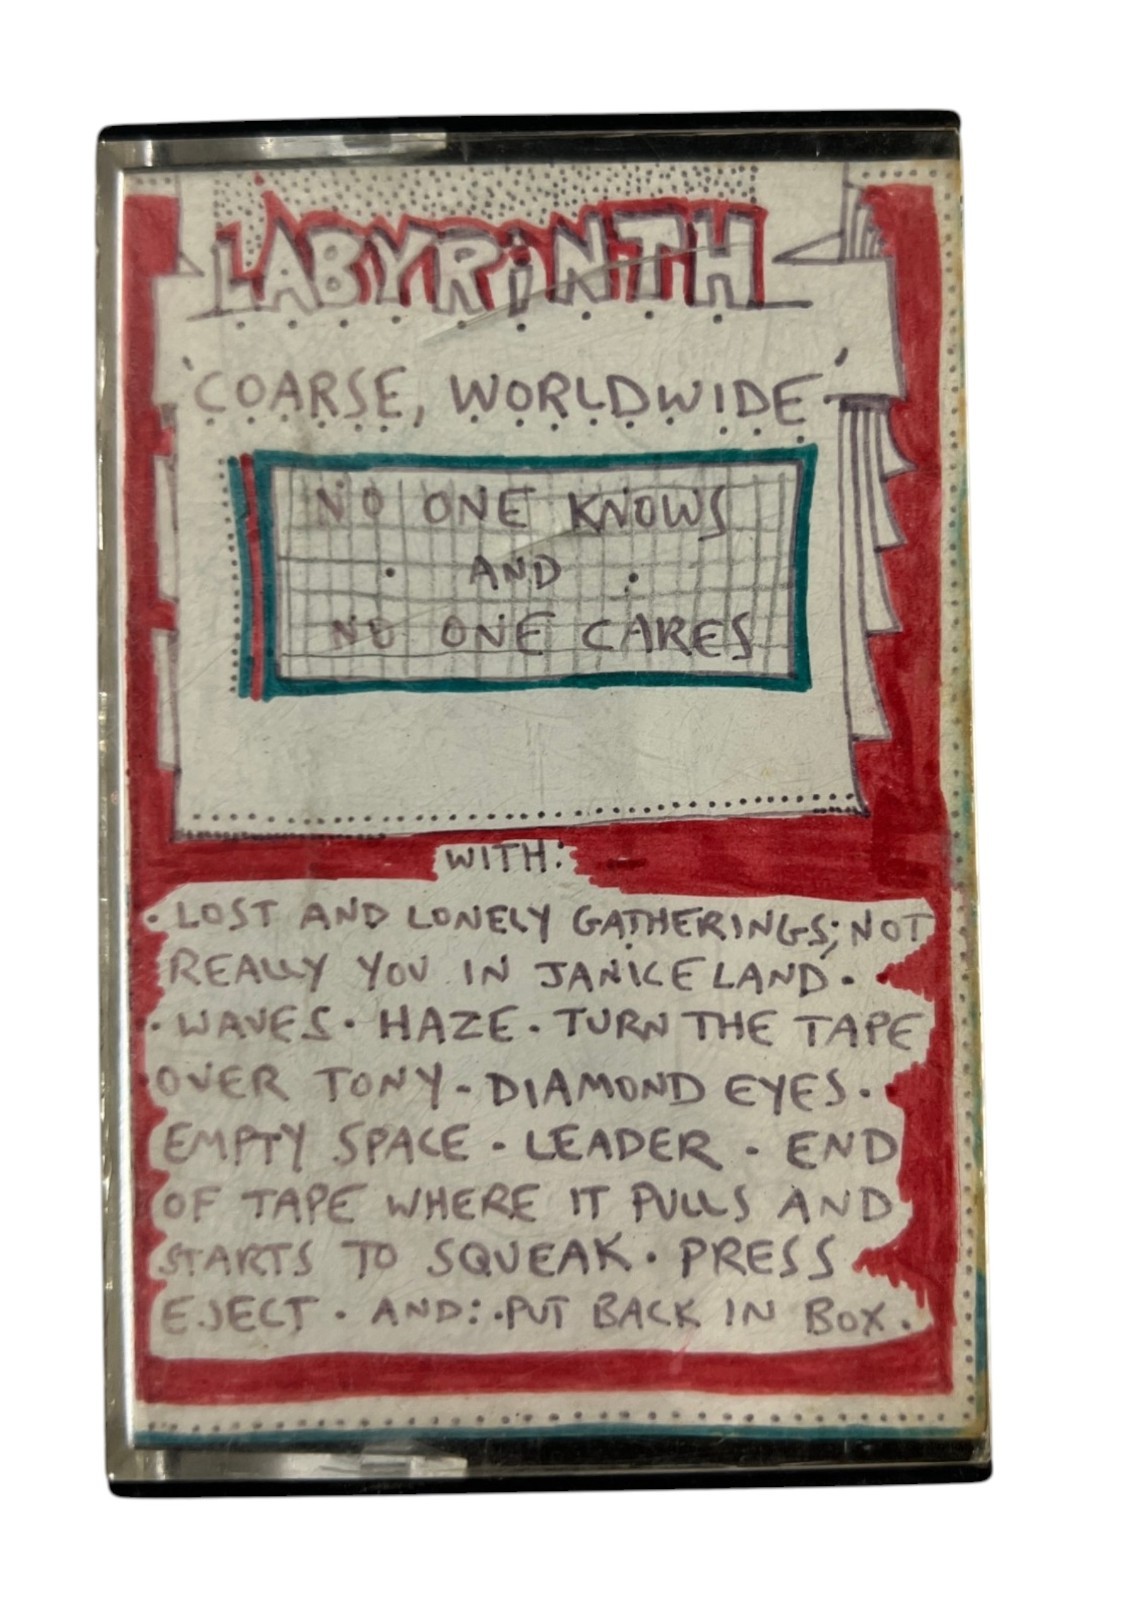 LABYRiNTH
'COARSE, WORLDWIDE'
NO ONE KNOWS
· AND ·
NO ONE CARES
WITH:
· LOST AND LONELY GATHERINGS; NOT
REALLY YOU IN JANICELAND ·
· WAVES · HAZE · TURN THE TAPE
OVER TONY - DIAMOND EYES ·
EMPTY SPACE · LEADER · END
OF TAPE WHERE IT PULLS AND
STARTS TO SQUEAK · PRESS
EJECT · AND: · PUT BACK IN BOX .